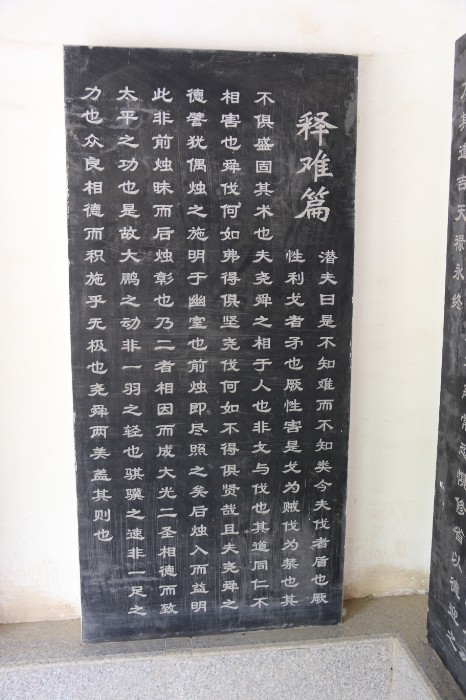 释难篇
潜夫曰是不知难而不知类今夫伐者盾也厥
性利戈者矛也厥性害是戈为贼伐为禁也其
不俱盛固其术也夫尧舜之相于人也非戈与伐也其道同仁不
相害也舜伐何如弗得俱坚尧伐何如不得俱贤哉且夫尧舜之
德譬犹偶烛之施明于幽室也前烛即尽照之矣后烛入而益明
此非前烛昧而后烛彰也乃二者相因而成大光二圣相德而致
太平之功也是故大鹏之动非一羽之轻也骐骥之速非一足之
力也众良相德而积施乎无极也尧舜两美盖其则也
其道吉天禄永终